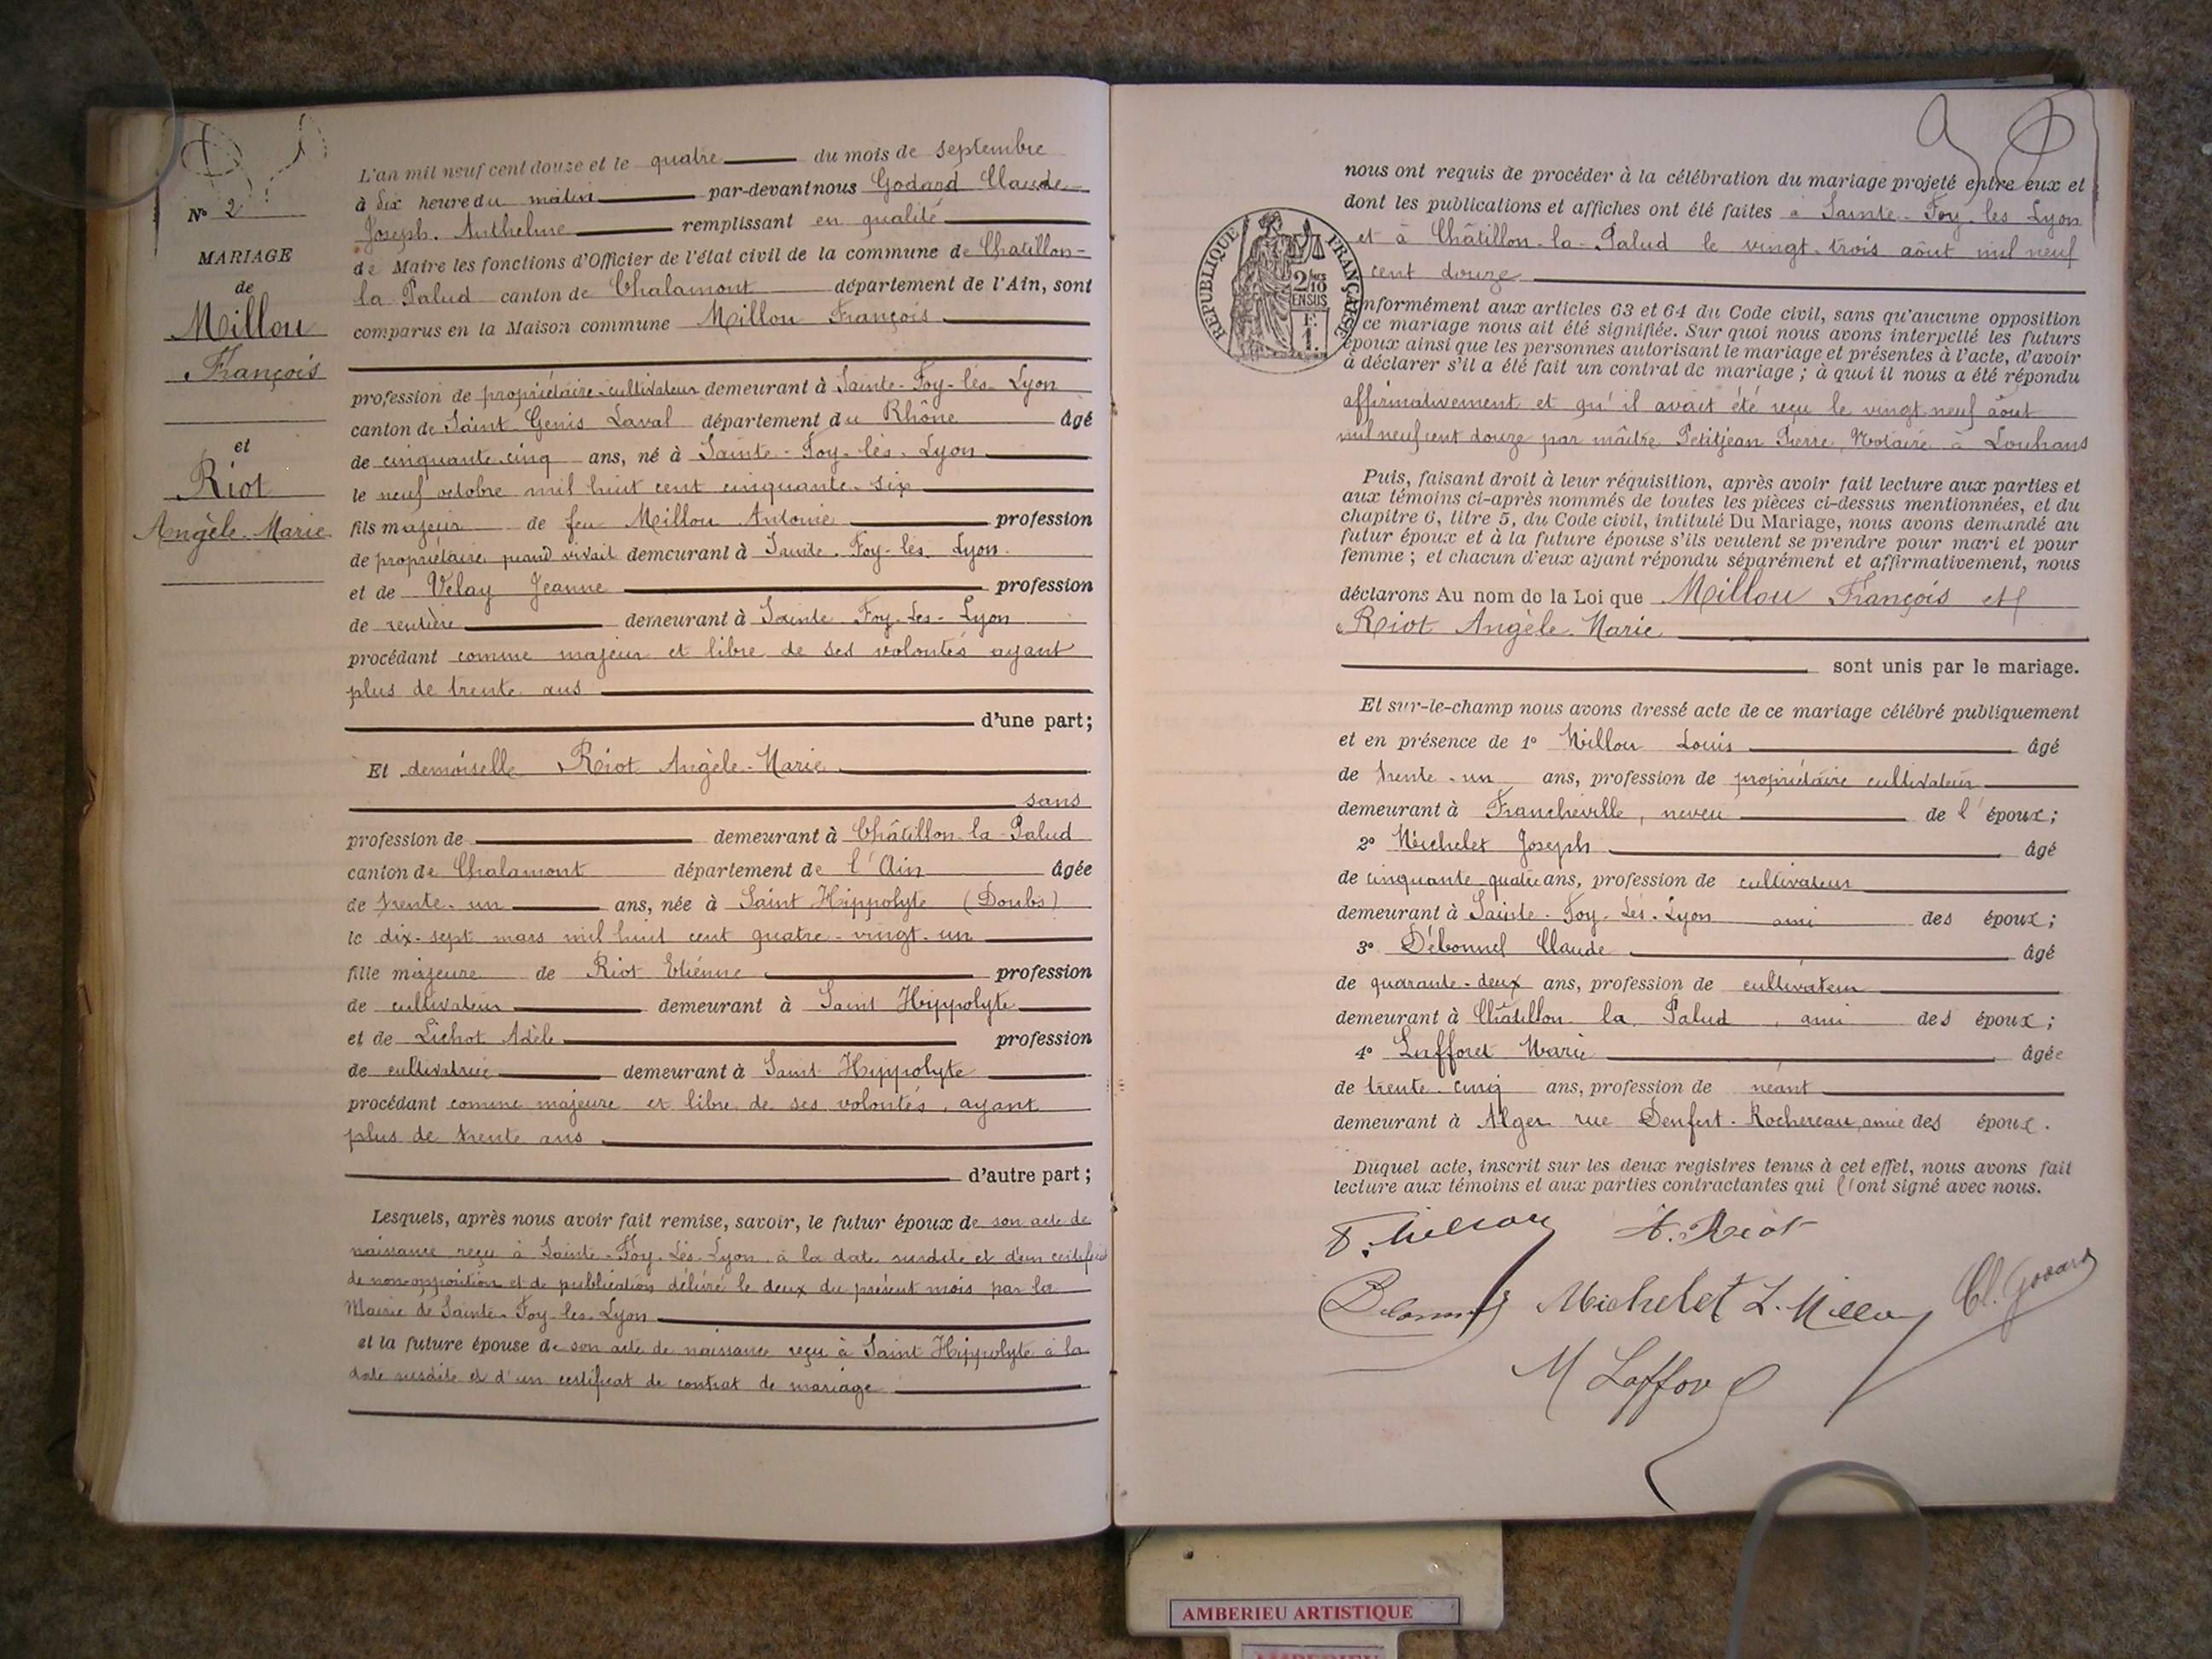 N° 2
MARIAGE
de
Millou
François
et
Riot
Angèle-Marie
L'an mil neuf cent douze et le quatre du mois de septembre
à dix heure du matin par-devant nous Godard Claude
Joseph. Anthelme remplissant en qualité
de Maire les fonctions d'Officier de l'état civil de la commune de Chatillon-
la Palud canton de Chalamont département de l'Ain, sont
comparus en la Maison commune Millou François
profession de propriétaire-cultivateur demeurant à Sainte-Foy-lès-Lyon
canton de Saint Genis Laval département du Rhône âgé
de cinquante-cinq ans, né à Sainte-Foy-lès-Lyon
le neuf octobre mil huit cent cinquante-six
fils majeur de feu Millou Antoine profession
de propriétaire quand vivait demeurant à Sainte-Foy-les-Lyon
et de Velay Jeanne profession
de rentière demeurant à Sainte Foy-Les-Lyon
procédant comme majeur et libre de ses volontés ayant
plus de trente ans
d'une part;
Et demoiselle Riot Angèle-Marie
sans
profession de demeurant à Châtillon-la-Palud
canton de Chalamont département de l'Ain âgée
de trente-un ans, née à Saint Hippolyte (Doubs)
le dix-sept mars mil huit cent quatre-vingt-un
fille majeure de Riot Etienne profession
de cultivateur demeurant à Saint Hippolyte
et de Lichot Adèle profession
de cultivatrice demeurant à Saint Hippolyte
procédant comme majeure et libre de ses volontés, ayant
plus de trente ans
d'autre part;
Lesquels, après nous avoir fait remise, savoir, le futur époux de son acte de
naissance reçu à Sainte-Foy-Lès-Lyon à la date susdite et d'un certificat
de non-opposition et de publication délivré le deux du présent mois par la
Mairie de Sainte-Foy-les-Lyon
et la future épouse de son acte de naissance reçu à Saint Hippolyte à la
date susdite et d'un certificat de contrat de mariage
nous ont requis de procéder à la célébration du mariage projeté entre eux et
dont les publications et affiches ont été faites à Sainte-Foy-les Lyon
et à Châtillon-la-Palud le vingt-trois août mil neuf
cent douze
RÉPUBLIQUE FRANÇAISE
2/10
EN SUS
F.
1.
onformément aux articles 63 et 64 du Code civil, sans qu'aucune opposition
ce mariage nous ait été signifiée. Sur quoi nous avons interpellé les futurs
époux ainsi que les personnes autorisant le mariage et présentes à l'acte, d'avoir
à déclarer s'il a été fait un contrat de mariage; à quoi il nous a été répondu
affirmativement et qu'il avait été reçu le vingt neuf août
mil neuf cent douze par maître Petitjean Pierre, Notaire à Louhans
Puis, faisant droit à leur réquisition, après avoir fait lecture aux parties et
aux témoins ci-après nommés de toutes les pièces ci-dessus mentionnées, et du
chapitre 6, titre 5, du Code civil, intitulé Du Mariage, nous avons demandé au
futur époux et à la future épouse s'ils veulent se prendre pour mari et pour
femme; et chacun d'eux ayant répondu séparément et affirmativement, nous
déclarons Au nom de la Loi que Millou François et
Riot Angèle-Marie
sont unis par le mariage.
Et sur-le-champ nous avons dressé acte de ce mariage célébré publiquement
et en présence de 1° Millou Louis âgé
de trente-un ans, profession de propriétaire cultivateur
demeurant à Francheville, neveu de l'époux;
2° Michelet Joseph âgé
de cinquante-quatre ans, profession de cultivateur
demeurant à Sainte-Foy-Lès-Lyon ami des époux;
3° Débonnel Claude âgé
de quarante-deux ans, profession de cultivateur
demeurant à Châtillon la Palud, ami des époux;
4° Lafforet Marie âgée
de trente-cinq ans, profession de néant
demeurant à Alger rue Denfert-Rochereau, amie des époux.
Duquel acte, inscrit sur les deux registres tenus à cet effet, nous avons fait
lecture aux témoins et aux parties contractantes qui l'ont signé avec nous.
F. Millou A. Riot
Michelet L. Millou Cl. Godard
M Laffor
AMBERIEU ARTISTIQUE
AMBERIEU